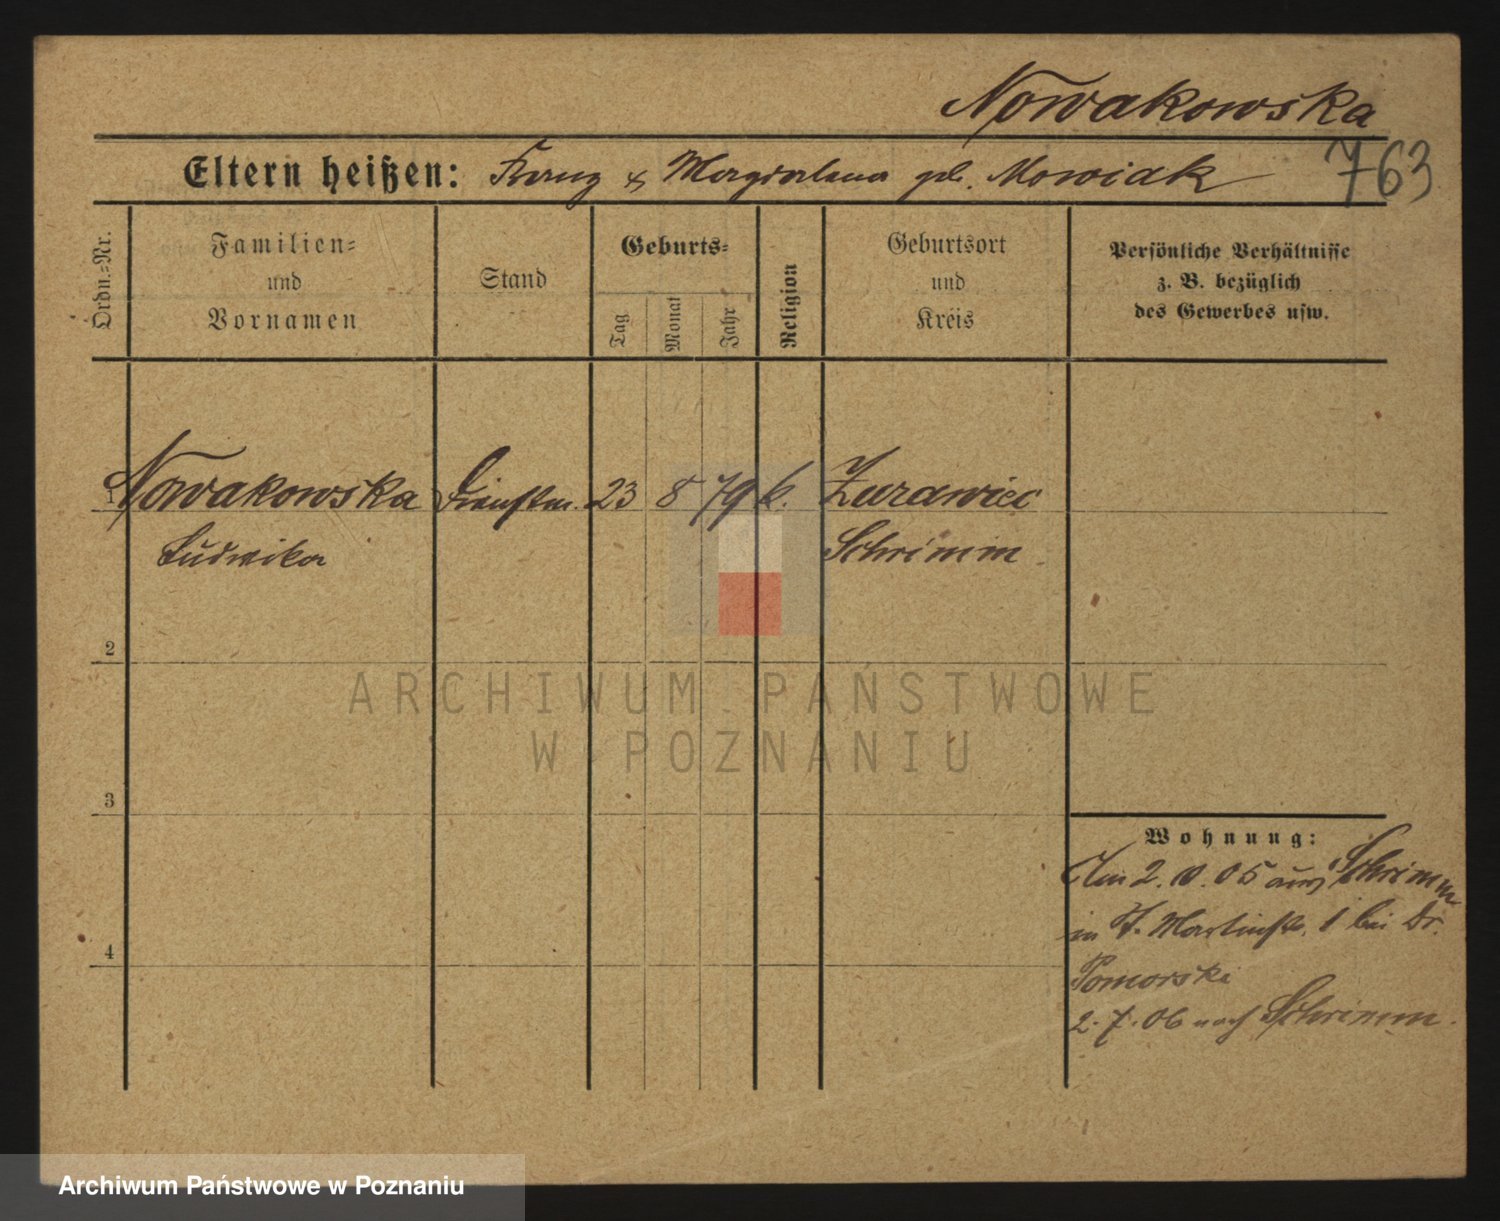 Nowakowska
763
Eltern heißen: Franz & Magdalena geb. Nowiak
Ordn.-Nr.
Familien-
und
Vornamen
Stand
Geburts-
Tag
Monat
Jahr
Religion
Geburtsort
und
Kreis
Persönliche Verhältnisse
z. B. bezüglich
des Gewerbes usw.
1 Nowakowska Dienstm. 23 8 79 k. Zurawiec
Ludwika Schrimm
2
3
4
Wohnung:
Am 2. 10. 05 aus Schrimm
in St. Martinstr. 1 bei Dr.
Pomorski
2. 7. 06 nach Schrimm.
ARCHIWUM PAŃSTWOWE
W POZNANIU
Archiwum Państwowe w Poznaniu